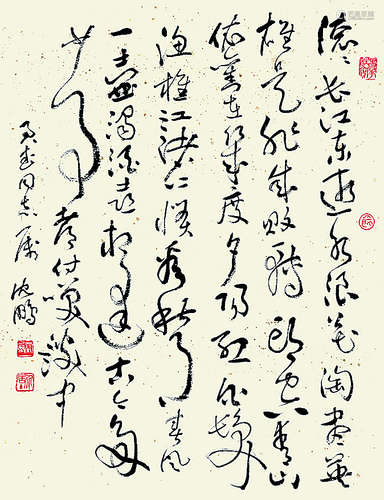 滚滚长江东逝水浪花淘尽英
雄是非成败转头空青山
依旧在几度夕阳红白发
渔樵江渚上惯看秋月春风
一壶浊酒喜相逢古今多
少事都付笑谈中
同志属 沈鹏